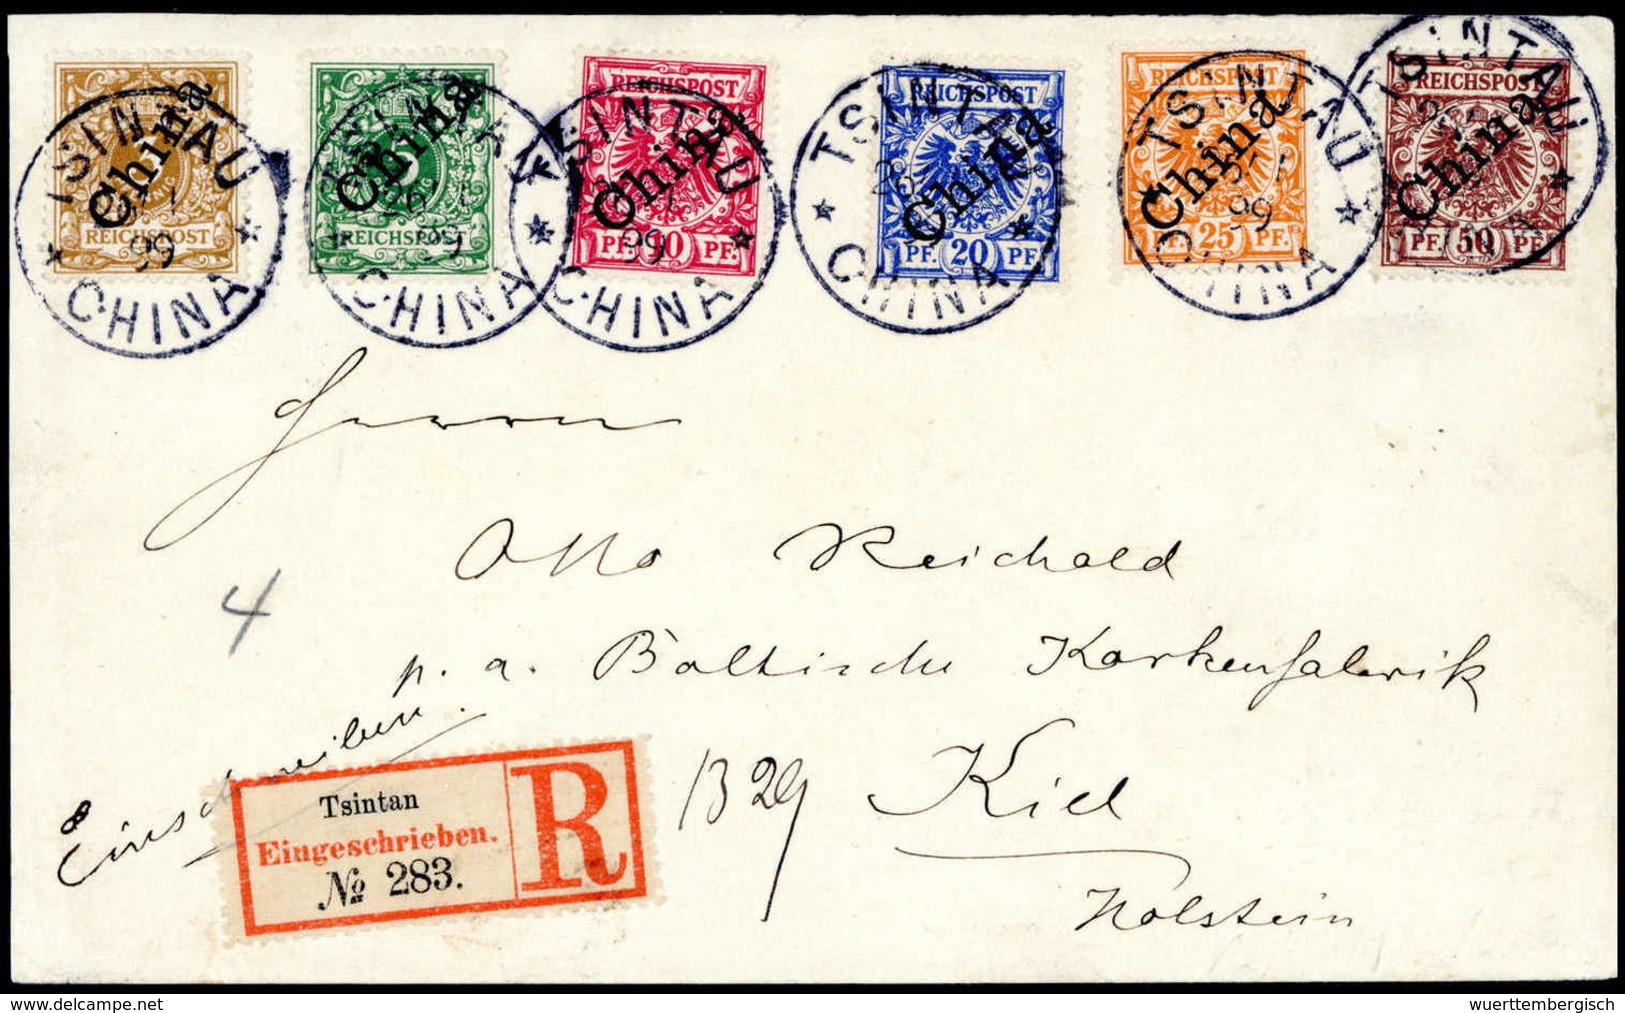 REICHSPOST REICHSPOST REICHSPOST REICHSPOST
China China China China China China
REICHSPOST REICHSPOST
PF. 10 PF. PF. 20 PF. PF. 25 PF. PF. 50 PF.
TSINTAU TSINTAU TSINTAU TSINTAU TSINTAU TSINTAU
99 99 99 99
CHINA CHINA CHINA CHINA CHINA
Herrn
Otto Reichald
4
p. a. Baltische Korkenfabrik
Einschreiben.
Kiel
1329
Holstein
Tsintan
Eingeschrieben.
№ 283.
R
www.delcampe.net
wuerttembergisch